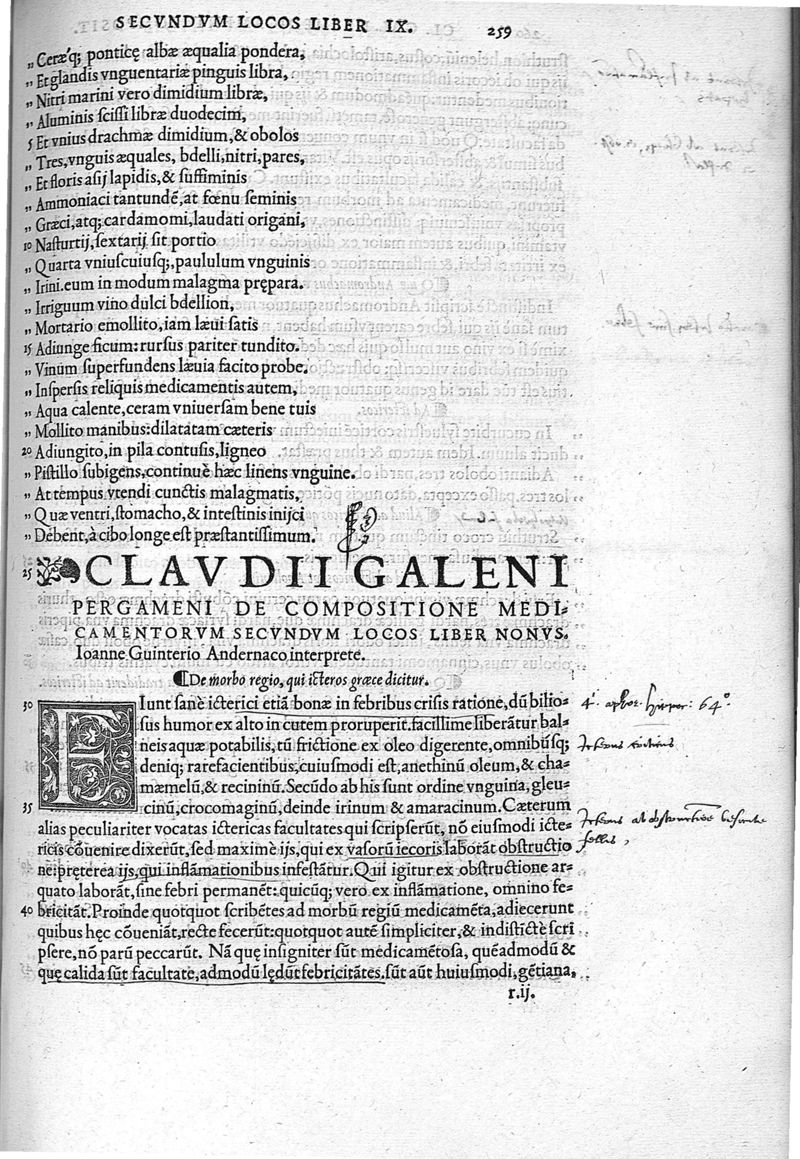 SECVNDVM LOCOS LIBER IX. 259
„ Ceræq; ponticę albæ æqualia pondera,
„ Et glandis vnguentariæ pinguis libra,
„ Nitri marini vero dimidium libræ,
„ Aluminis scissi libræ duodecim,
5 Et vnius drachmæ dimidium, & obolos
„ Tres, vnguis æquales, bdelli, nitri, pares,
„ Et floris asij lapidis, & suffiminis
„ Ammoniaci tantundē, at fœnu seminis
„ Græci, atq; cardamomi, laudati origani,
10 Nasturtij, sextarij sit portio
„ Quarta vniuscuiusq;, paululum vnguinis
„ Irini. eum in modum malagma prępara.
„ Irriguum vino dulci bdellion,
„ Mortario emollito, iam læui satis
15 Adiunge ficum: rursus pariter tundito.
„ Vinum superfundens læuia facito probe.
„ Inspersis reliquis medicamentis autem,
„ Aqua calente, ceram vniuersam bene tuis
„ Mollito manibus: dilatatam cæteris
20 Adiungito, in pila contusis, ligneo
„ Pistillo subigens, continuè hæc linens vnguine.
„ At tempus vtendi cunctis malagmatis,
„ Quæ ventri, stomacho, & intestinis inijci
„ Debent, à cibo longe est præstantissimum.
25 CLAVDII GALENI
PERGAMENI DE COMPOSITIONE MEDI-
CAMENTORVM SECVNDVM LOCOS LIBER NONVS.
Ioanne Guinterio Andernaco interprete.
¶De morbo regio, qui icteros græce dicitur.
30 FIunt sanè icterici etiā bonæ in febribus crisis ratione, dū bilio-
sus humor ex alto in cutem proruperit. facillime liberātur bal-
neis aquæ potabilis, tū frictione ex oleo digerente, omnibusq;
deniq; rarefacientibus, cuiusmodi est, anethinū oleum, & cha-
mæmelū, & recininū. Secūdo ab his sunt ordine vnguina, gleu-
35 cinū, crocomaginū, deinde irinum & amaracinum. Cæterum
alias peculiariter vocatas ictericas facultates qui scripserūt, nō eiusmodi icte-
ricis cōuenire dixerūt, sed maximè ijs, qui ex vasorū iecoris laborāt obstructio
ne: pręterea ijs, qui inflāmationibus infestātur. Qui igitur ex obstructione ar-
quato laborāt, sine febri permanēt: quicūq; vero ex inflāmatione, omnino fe-
40 bricitāt. Proinde quotquot scribētes ad morbū regiū medicamēta, adiecerunt
quibus hęc cōueniāt, recte fecerūt: quotquot autē simpliciter, & indistinctè scri
psere, nō parū peccarūt. Nā quę insigniter sūt medicamētosa, quēadmodū &
quę calida sūt facultate, admodū lędūt febricitātes. sūt aūt huiusmodi, gētiana,
r.ij.
4. aphor. Hippoc: 64°.